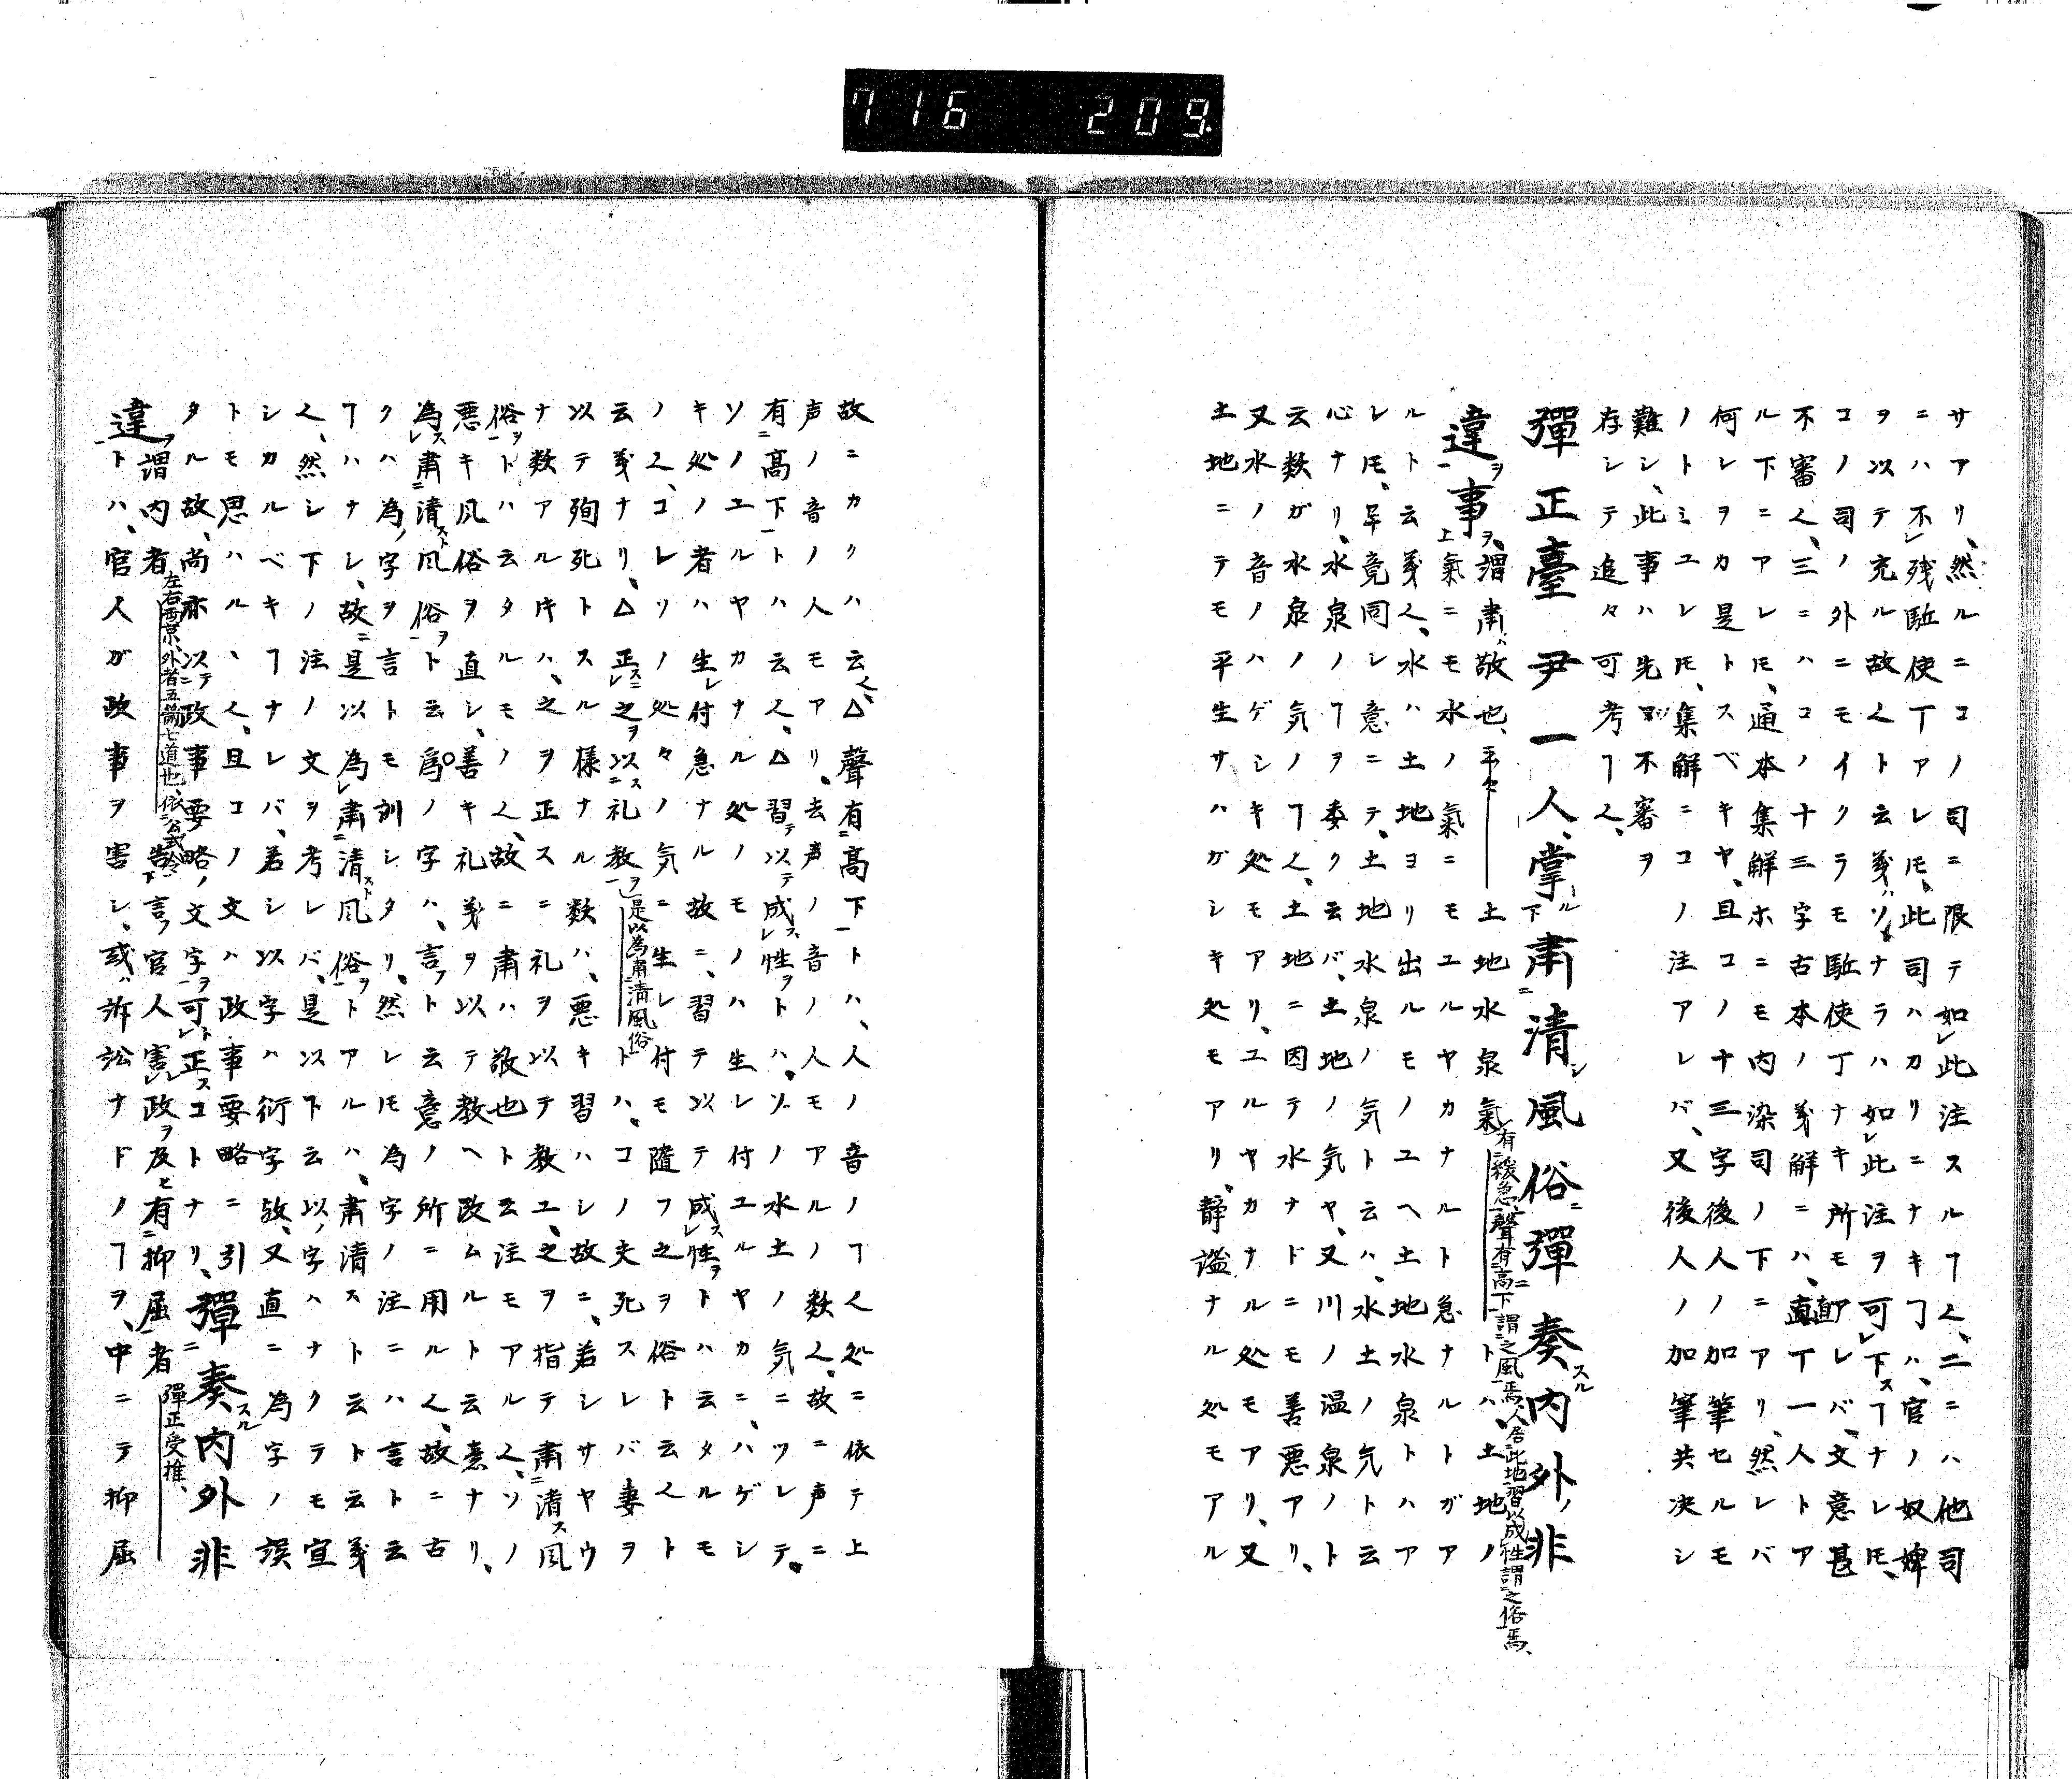 716 209.
サアリ、然ルニコノ司ニ限テ如レ此注スルヿ〱、二ニハ他司
ニハ不レ残駈使丁アレ𪜈、此司ハカリニナキヿハ、官ノ奴婢
ヲ以テ充ル故〱ト云義ハソナラハ如レ此注ヲ可レ下スヿナレ𪜈、
コノ司ノ外ニモイクラモ駈使丁ナキ所モアレバ、文意甚
不審〱、三ニハコノ十三字古本ノ義解ニハ、直丁一人トア
ル下ニアレ𪜈、通本集解ホニモ内染司ノ下ニアリ、然レバ
何レヲカ是トスベキヤ、且コノ十三字後人ノ加筆セルモ
ノトミユレ𪜈、集解ニコノ注アレバ、又後人ノ加筆共决シ
難シ、此事ハ先ツ不審ヲ
存シテ追々可考ヿ〱、
彈正臺尹一人、掌ル下肅ニ清シ風俗ニ彈ニ奏スル内外ノ非
違ヲ一事ヲ上、謂肅ハ敬也、云々 土地水泉氣有ニ緩急一、聲有ニ高下一、謂ニ之風一焉、人居ニ此地一習以成レ性、謂ニ之俗一焉、 トハ、土地ノ
氣ニモ水ノ氣ニモユルヤカナルト急ナルトガア
ルト云義〱、水ハ土地ヨリ出ルモノユヘ土地水泉トハア
レ𪜈、畢竟同シ意ニテ、土地水泉ノ気ト云ハ、水土ノ気ト云
心ナリ、水泉ノヿヲ委ク云バ、土地ノ気ヤ、又川ノ温泉ノト
云数ガ水泉ノ気ノヿ〱、土地ニ因テ水ナドニモ善悪アリ、
又水ノ音ノハゲシキ処モアリ、ユルヤカナル処モアリ、又
土地ニテモ平生サハガシキ処モアリ、静謐ナル処モアル
故ニカクハ云〱、△聲有ニ高下一トハ、人ノ音ノヿ〱処ニ依テ上
声ノ音ノ人モアリ、去声ノ音ノ人モアルノ数〱、故ニ声ニ
有ニ高下一トハ云〱、△習テ以テ成レス性ヲトハ、ソノ水土ノ気ニツレテ、
ソノユルヤカナル処ノモノハ生レ付ユルヤカニ、ハゲシ
キ処ノ者ハ生レ付急ナル故ニ、習テ以テ成レス性ヲトハ云タルモ
ノ〱、コレリノ処々ノ気ニ生レ付モ随フ之ヲ俗ト云〱ト
云義ナリ、△正レスニ之ヲ以ニス礼教一ヲ是以為レ肅ニ清風俗一トハ、コノ夫死スレバ妻ヲ
以テ殉死トスル様ナル数ハ、悪キ習ハシ故ニ、若シサヤウ
ナ数アル𪜈ハ、之ヲ正スニ礼ヲ以テ教ユ、之ヲ指テ肅ニ清ス風
俗一ヲトハ云タルモノ〱、故ニ肅ハ敬也ト云注モアル〱、ソノ
悪キ風俗ヲ直シ、善キ礼義ヲ以テ教ヘ改ムルト云意ナリ、
為レス肅ニ清スト風俗一ヲト云為ノ字ハ、言フト云意ノ所ニ用ル〱、故ニ古
クハ為ノ字ヲ言トモ訓シタリ、然レ𪜈為字ノ注ニハ言ト云
ヿハナシ、故ニ是以為レ肅ニ清スト風俗一ヲトアルハ、肅清ストト云ト云義
〱、然シ下ノ注ノ文ヲ考レバ、是以下云以ノ字ハナクテモ宜
シカルベキヿナレバ、若シ以字ハ衍字歟、又直ニ為字ノ誤
トモ思ハル、〱、且コノ文ハ政事要略ニ引
タル故、尚亦以テニ政事要略ノ文字一ヲ可レト正スコトナリ、彈ニ奏スル内外非
違一ヲ謂内者左右両京、外者五畿七道也、依ニ公式令一、告下言フ官人害レ政ヲ及ヒ有ニ抑屈一者彈正受推、
違一トハ、官人ガ政事ヲ害シ、或ハ訴訟ナドノヿヲ、中ニテ抑屈